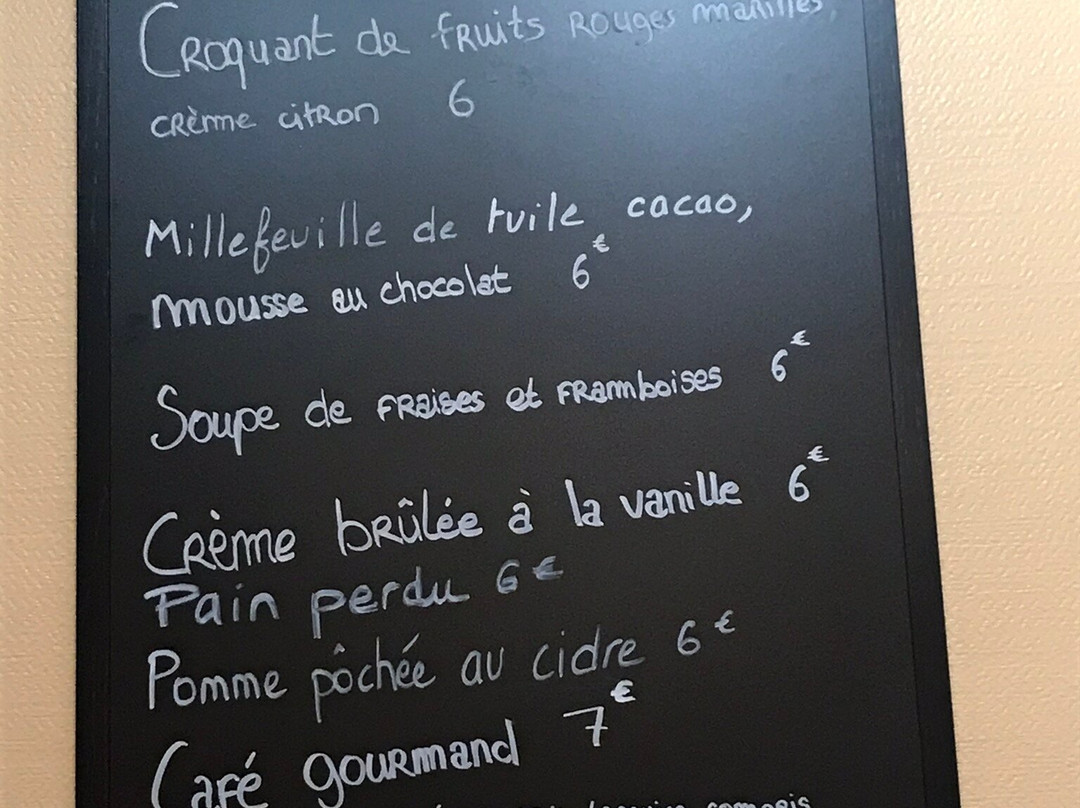 Croquant de fruits rouges
crème citron 6
Millefeuille de tuile cacao,
mousse au chocolat 6€
Soupe de fraises et framboises 6€
Crème brûlée à la vanille 6€
Pain perdu 6€
Pomme pôchée au cidre 6€
Café gourmand 7€
compris